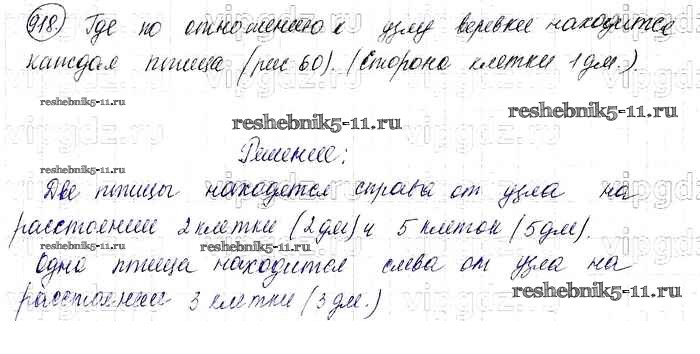 918. Где по отношению к узлу веревке находится
каждая птица (рис 60). (Сторона клетки 1 дм.).
reshebnik5-11.ru
reshebnik5-11.ru
reshebnik5-11.ru
Решение:
Две птицы находятся справа от узла на
расстоянии 2 клетки (2дм) и 5 клеток (5дм).
reshebnik5-11.ru
reshebnik5-11.ru
Одна птица находится слева от узла на
расстоянии 3 клетки (3 дм.)
reshebnik5-11.ru
reshebnik5-11.ru